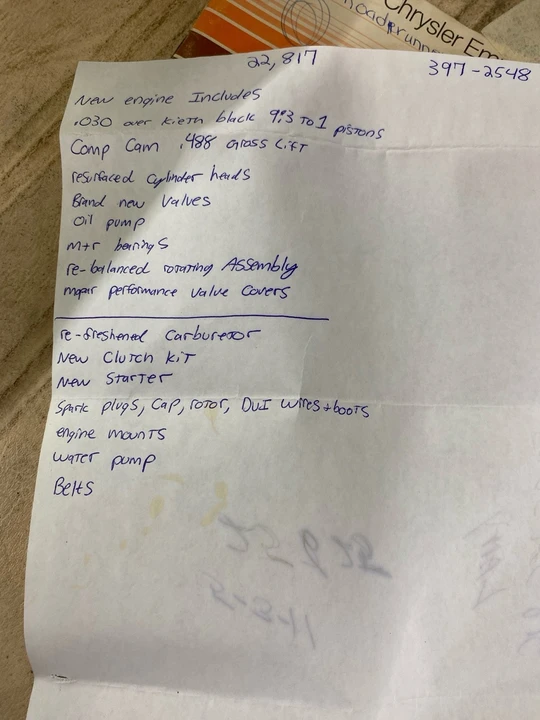 Chrysler Em
oadrunne
22,817
397-2548
New engine Includes
.030 over kieth black 9:3 to 1 pistons
Comp Cam .488 Gross Lift
resurfaced cylinder heads
Brand new valves
Oil pump
m+r bearings
re-balanced rotating Assembly
mopar performance valve covers
re-freshened Carburetor
New Clutch Kit
New Starter
Spark plugs, Cap, rotor, DUI wires + boots
engine mounts
water pump
Belts